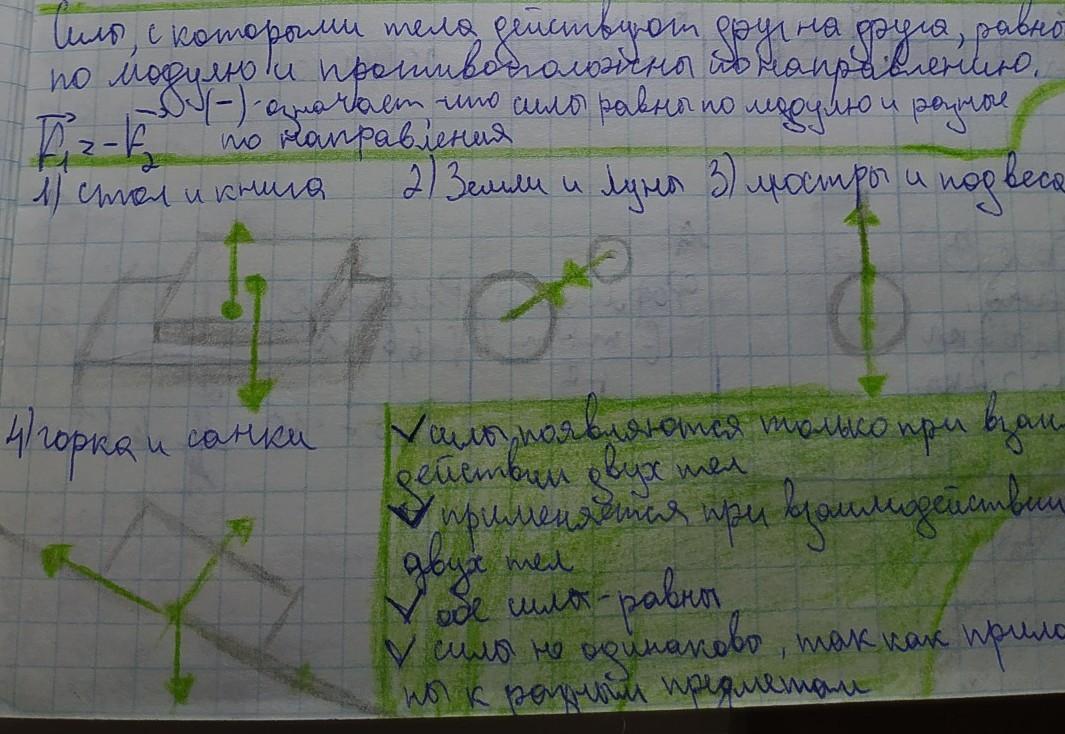 Силы, с которыми тела действуют друг на друга, равно
по модулю и противоположны по направлению.
(-)-означает что силы равны по модулю и разные
F₁=-F₂ по направления
1) стол и книга 2) Земли и Луны 3) люстры и подвеса
4) горка и санки
✓ силы, появляются только при взаи-
действии двух тел
✓ применяется при взаимодействии
двух тел
✓ обе силы-равны
✓ силы не одинаково, так как прило
ны к разным предметам